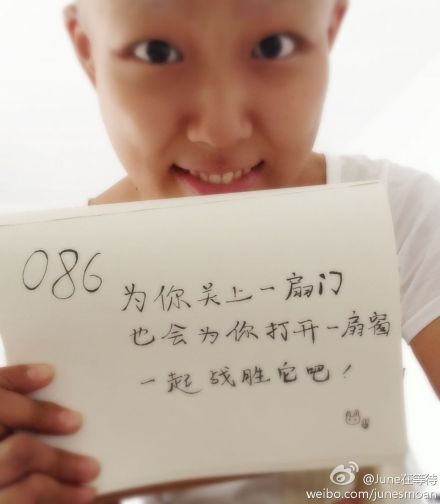 086
为你关上一扇门
也会为你打开一扇窗
一起战胜它吧!
@June在等待
weibo.com/junesmoan